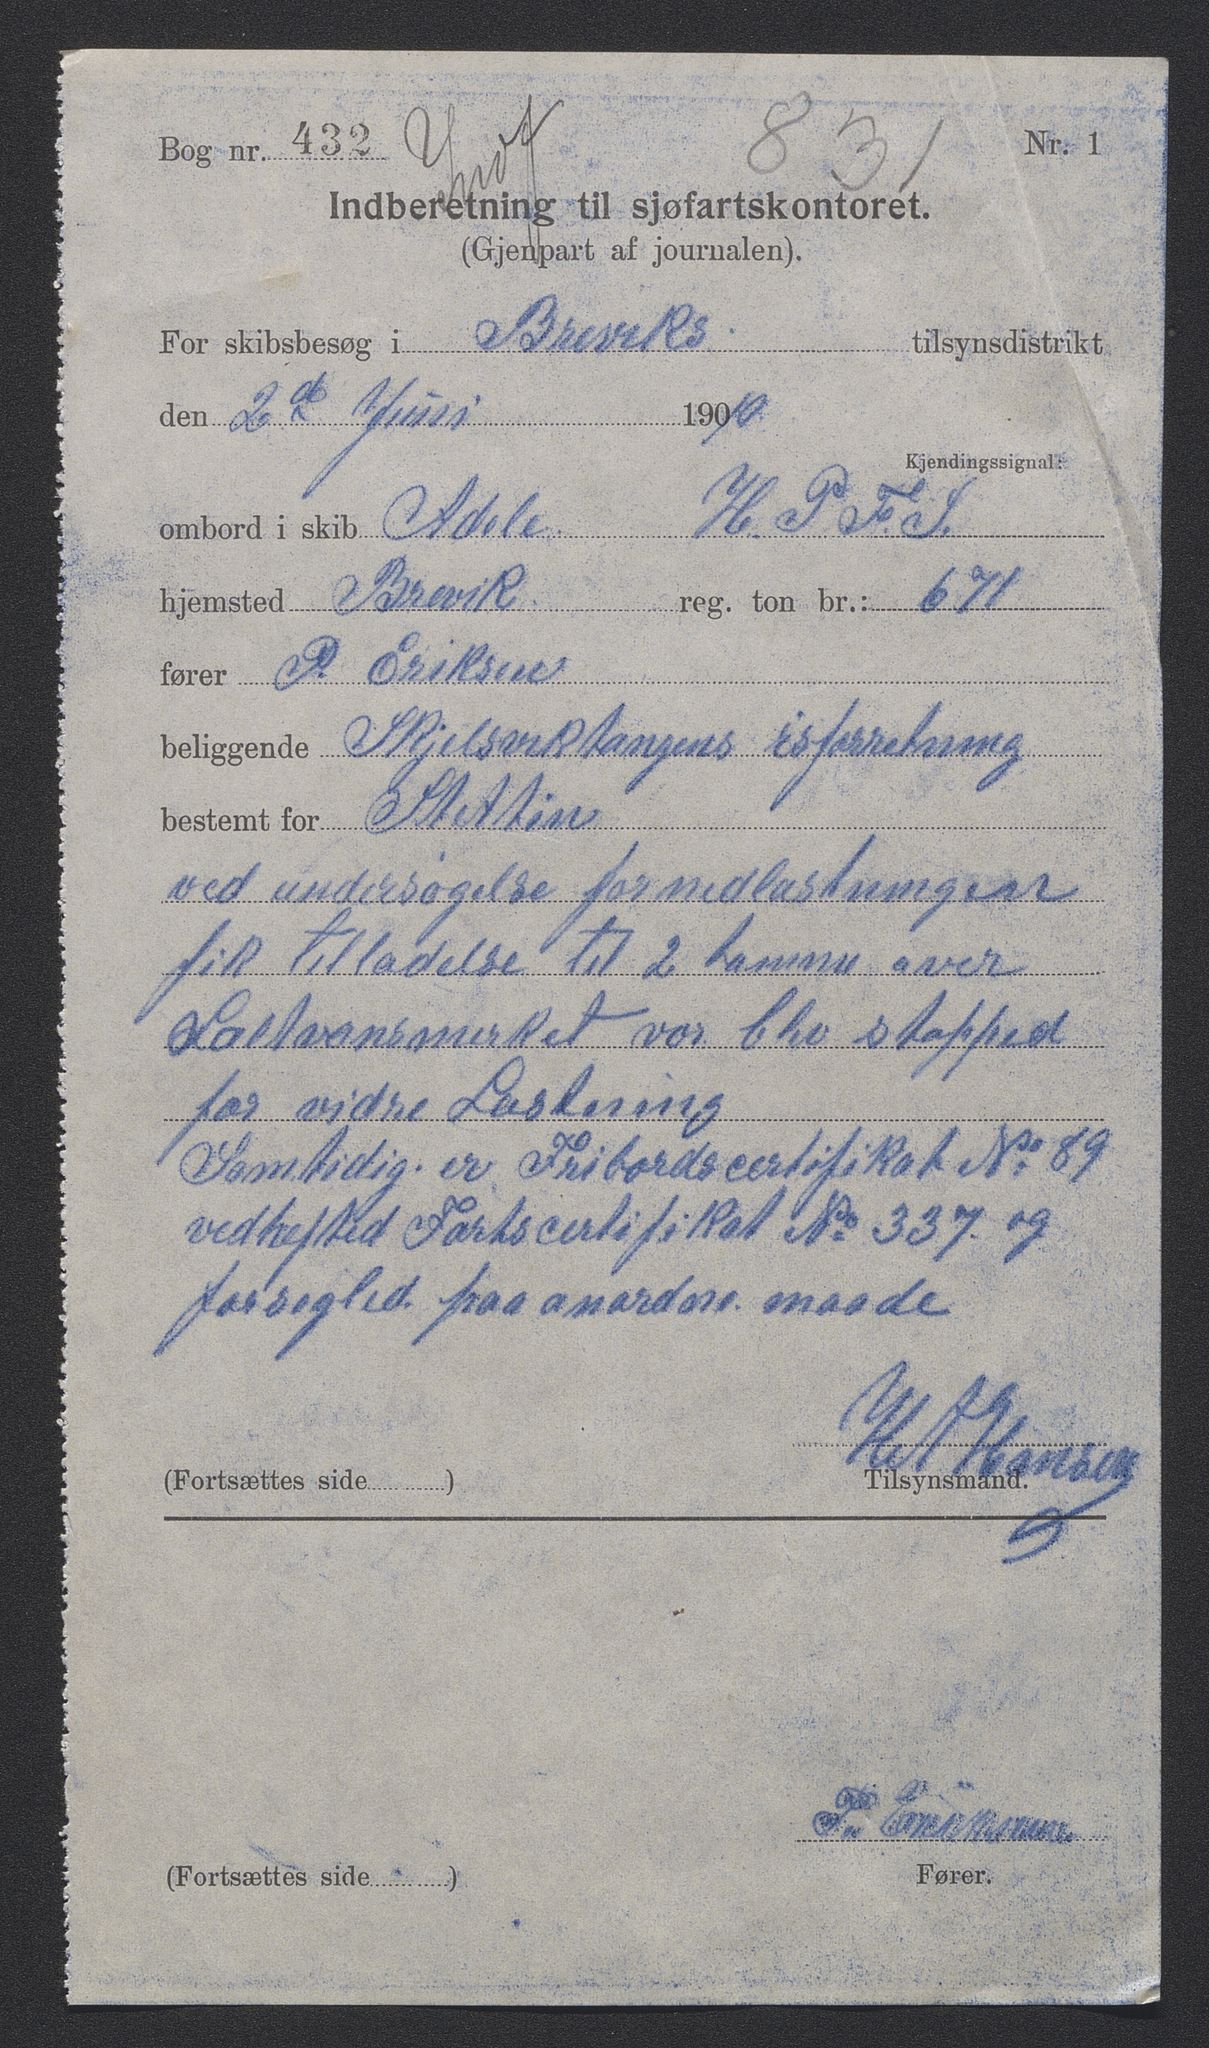 Bog nr. 432 831 Nr. 1
Indberetning til sjøfartskontoret.
(Gjenpart af journalen).
For skibsbesøg i Breviks tilsynsdistrikt
den 2d Juni 1910.
Kjendingssignal:
ombord i skib Adele. H. P. F. S.
hjemsted Brevik reg. ton br.: 671
fører P. Eriksen
beliggende Skjelsviktangens isforretning
bestemt for Stettin
ved undersøgelse for nedlastningen
fik tilladelse til 2 tomme over
Saltvansmerket vor blev stopped
for vidre Lastning
Samtidig er Fribordscertifikat No 89
vedhefted Fartscertifikat No 337. og
forsegled paa anordne. maade
Hansen
(Fortsættes side ) Tilsynsmand.
(Fortsættes side )
Fører.